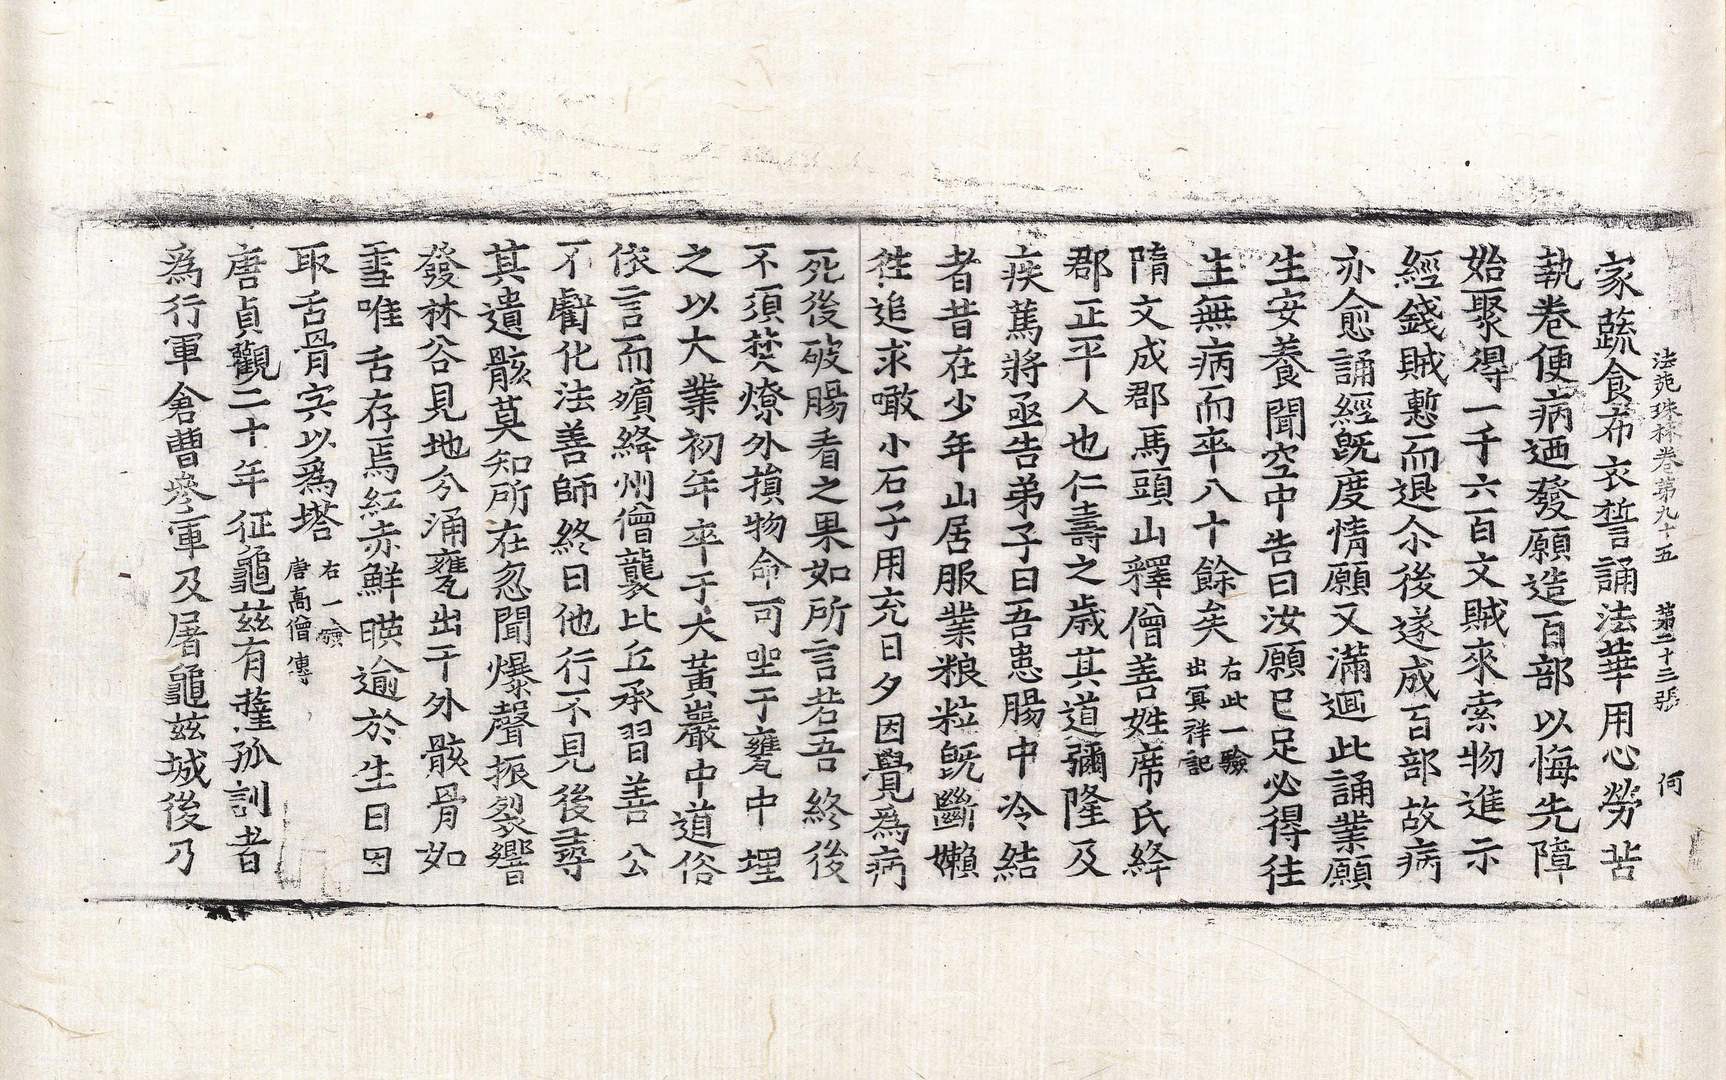 法苑珠林卷第九十五 第二十三張 何
家蔬食布衣誓誦法華用心勞苦
執卷便病迺發願造百部以悔先障
始聚得一千六百文賊來索物進示
經錢賊慙而退尒後遂成百部故病
亦愈誦經旣度情願又滿迴此誦業願
生安養聞空中告曰汝願已足必得往
生無病而卒八十餘矣 右此一驗
出冥祥記
隋文成郡馬頭山釋僧善姓席氏絳
郡正平人也仁壽之歲其道彌隆及
疾篤將亟告弟子曰吾患腸中冷結
者昔在少年山居服業粮粒旣斷嬾
往追求噉小石子用充日夕因覺為病
死後破腸看之果如所言若吾終後
不須焚燎外損物命可坐于甕中埋
之以大業初年卒于大黃巖中道俗
依言而殯絳州僧襲比丘承習善公
不虧化法善師終日他行不見後尋
其遺骸莫知所在忽聞爆聲振裂響
發林谷見地分涌甕出于外骸骨如
雪唯舌存焉紅赤鮮暎逾於生日因
取舌骨㝉以為塔 右一驗
唐高僧傳
唐貞觀二十年征龜茲有薩孤訓者
為行軍倉曹參軍及屠龜茲城後乃